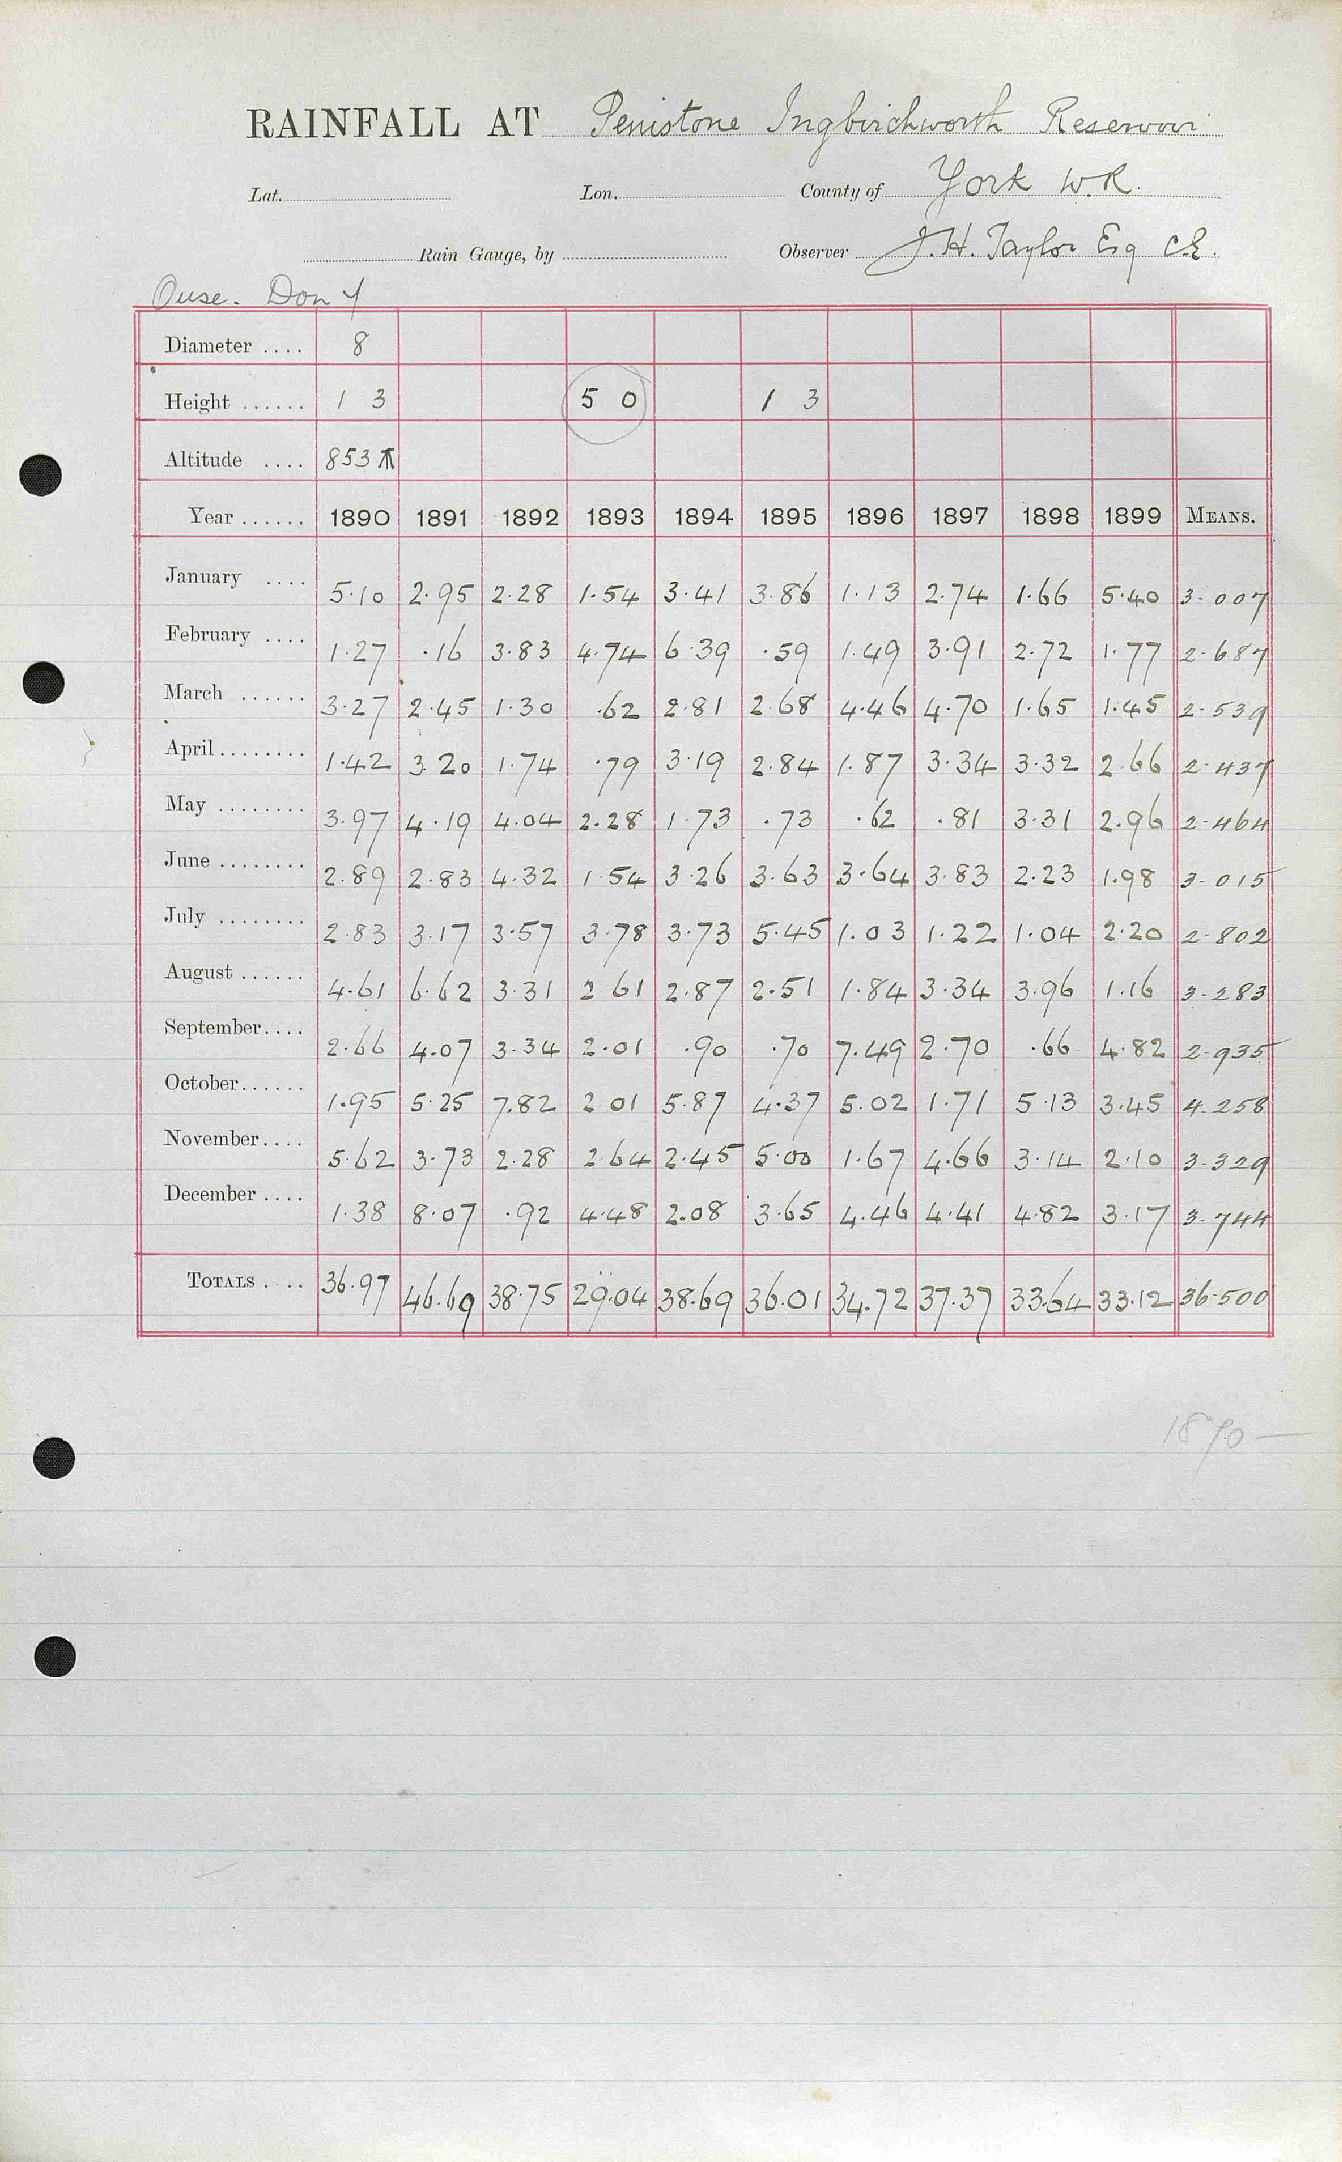 RAINFALL AT Penistone Ingbirchworth Reservoir
Lat. Lon. County of York W.R.
Rain Gauge, by Observer J.H. Taylor Esq C.E.
Ouse. Don 4
Diameter .... 8
Height ...... 1 3 5 0 1 3
Altitude .... 853
Year ...... 1890 1891 1892 1893 1894 1895 1896 1897 1898 1899 MEANS.
January .... 5.10 2.95 2.28 1.54 3.41 3.86 1.13 2.74 1.66 5.40 3.007
February .... 1.27 .16 3.83 4.74 6.39 .59 1.49 3.91 2.72 1.77 2.687
March ...... 3.27 2.45 1.30 .62 2.81 2.68 4.46 4.70 1.65 1.45 2.539
April ........ 1.42 3.20 1.74 .79 3.19 2.84 1.87 3.34 3.32 2.66 2.437
May ........ 3.97 4.19 4.04 2.28 1.73 .73 .62 .81 3.31 2.96 2.464
June ........ 2.89 2.83 4.32 1.54 3.26 3.63 3.64 3.83 2.23 1.98 3.015
July ........ 2.83 3.17 3.57 3.78 3.73 5.45 1.03 1.22 1.04 2.20 2.802
August ...... 4.61 6.62 3.31 2.61 2.87 2.51 1.84 3.34 3.96 1.16 3.283
September.... 2.66 4.07 3.34 2.01 .90 .70 7.49 2.70 .66 4.82 2.935
October...... 1.95 5.25 7.82 2.01 5.87 4.37 5.02 1.71 5.13 3.45 4.258
November.... 5.62 3.73 2.28 2.64 2.45 5.00 1.67 4.66 3.14 2.10 3.329
December .... 1.38 8.07 .92 4.48 2.08 3.65 4.46 4.41 4.82 3.17 3.744
TOTALS .... 36.97 46.69 38.75 29.04 38.69 36.01 34.72 37.37 33.64 33.12 36.500
1890 —